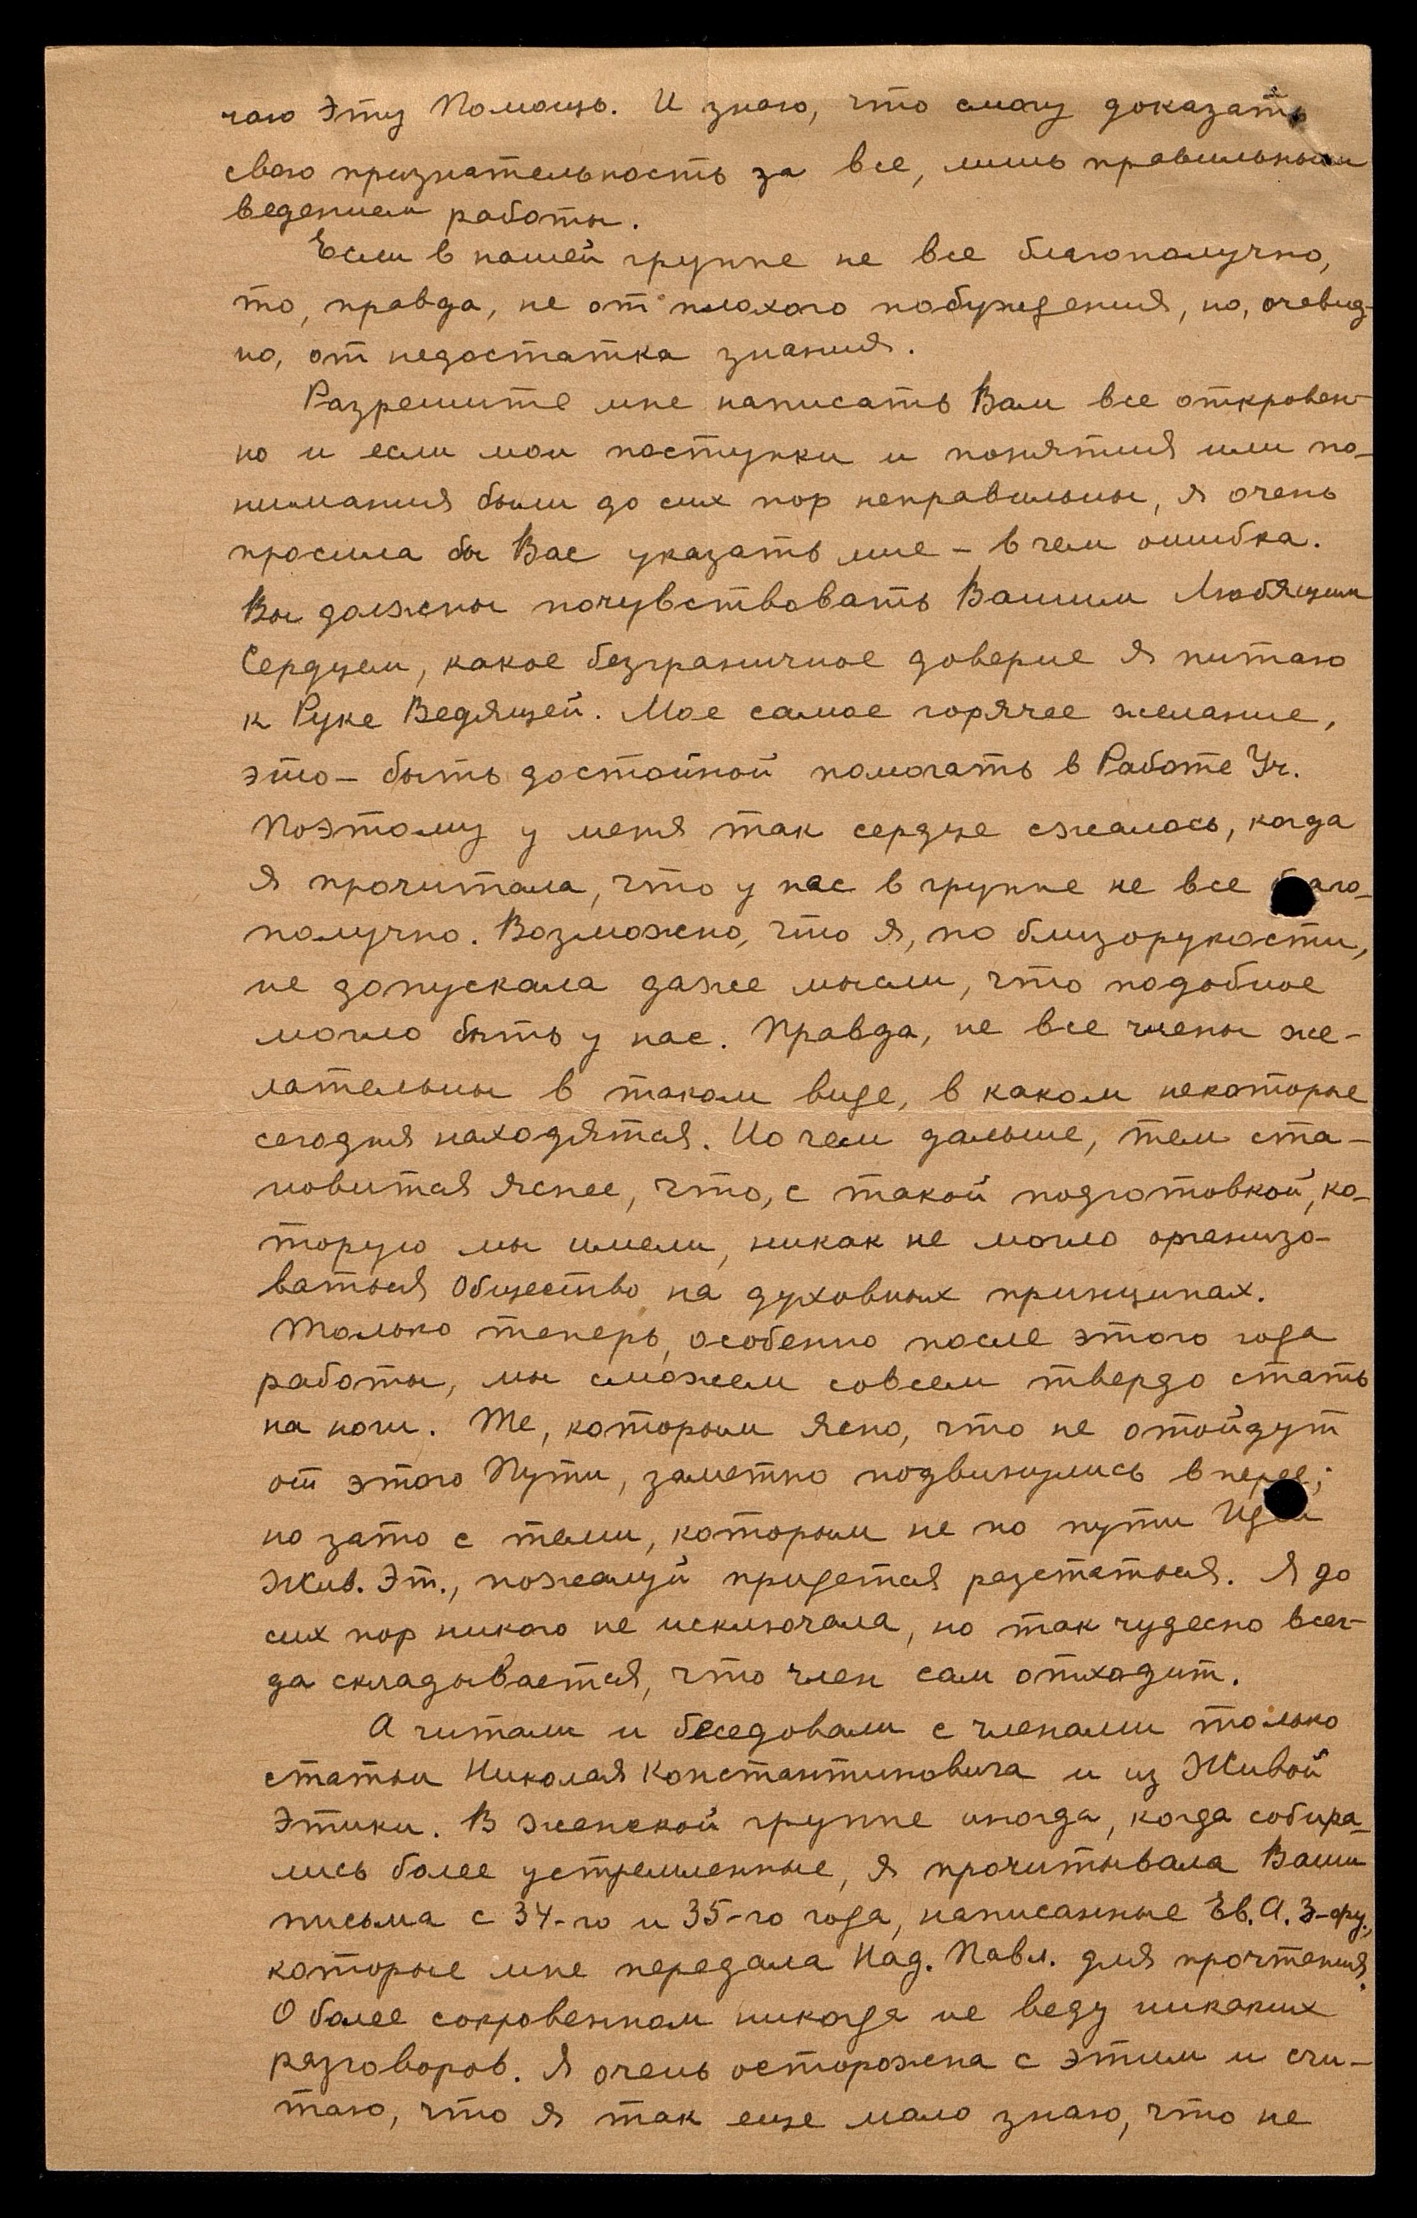 чаю Эту Помощь. И знаю, что смогу доказать
свою признательность за все, лишь правильным
ведением работы.
Если в нашей группе не все благополучно,
то, правда, не от плохого побуждения, но, очевид-
но, от недостатка знания.
Разрешите мне написать Вам все откровен-
но и если мои поступки и понятия или по-
нимания были до сих пор неправильны, я очень
просила бы Вас указать мне – в чем ошибка.
Вы должны почувствовать Вашим Любящим
Сердцем, какое безграничное доверие я питаю
к Руке Ведящей. Мое самое горячее желание,
это – быть достойной помогать в Работе Уч.
Поэтому у меня так сердце сжалось, когда
я прочитала, что у нас в группе не все благо-
получно. Возможно, что я, по близорукости,
не допускала даже мысли, что подобное
могло быть у нас. Правда, не все члены же-
лательны в таком виде, в каком некоторые
сегодня находятся. Но чем дальше, тем ста-
новится яснее, что, с такой подготовкой, ко-
торую мы имели, никак не могло организо-
ваться Общество на духовных принципах.
Только теперь, особенно после этого года
работы, мы сможем совсем твердо стать
на ноги. Те, которым ясно, что не отойдут
от этого Пути, заметно подвинулись вперед;
но зато с теми, которым не по пути Идеи
Жив. Эт., пожалуй придется разстаться. Я до
сих пор никого не исключала, но так чудесно всег-
да складывается, что член сам отходит.
А читали и беседовали с членами только
статьи Николая Константиновича и из Живой
Этики. В женской группе иногда, когда собира-
лись более устремленные, я прочитывала Ваши
письма с 34-го и 35-го года, написанные Ев. А. З-фу,
которые мне передала Над. Павл. для прочтения.
О более сокровенном никогда не веду никаких
разговоров. Я очень осторожна с этим и счи-
таю, что я так еще мало знаю, что не